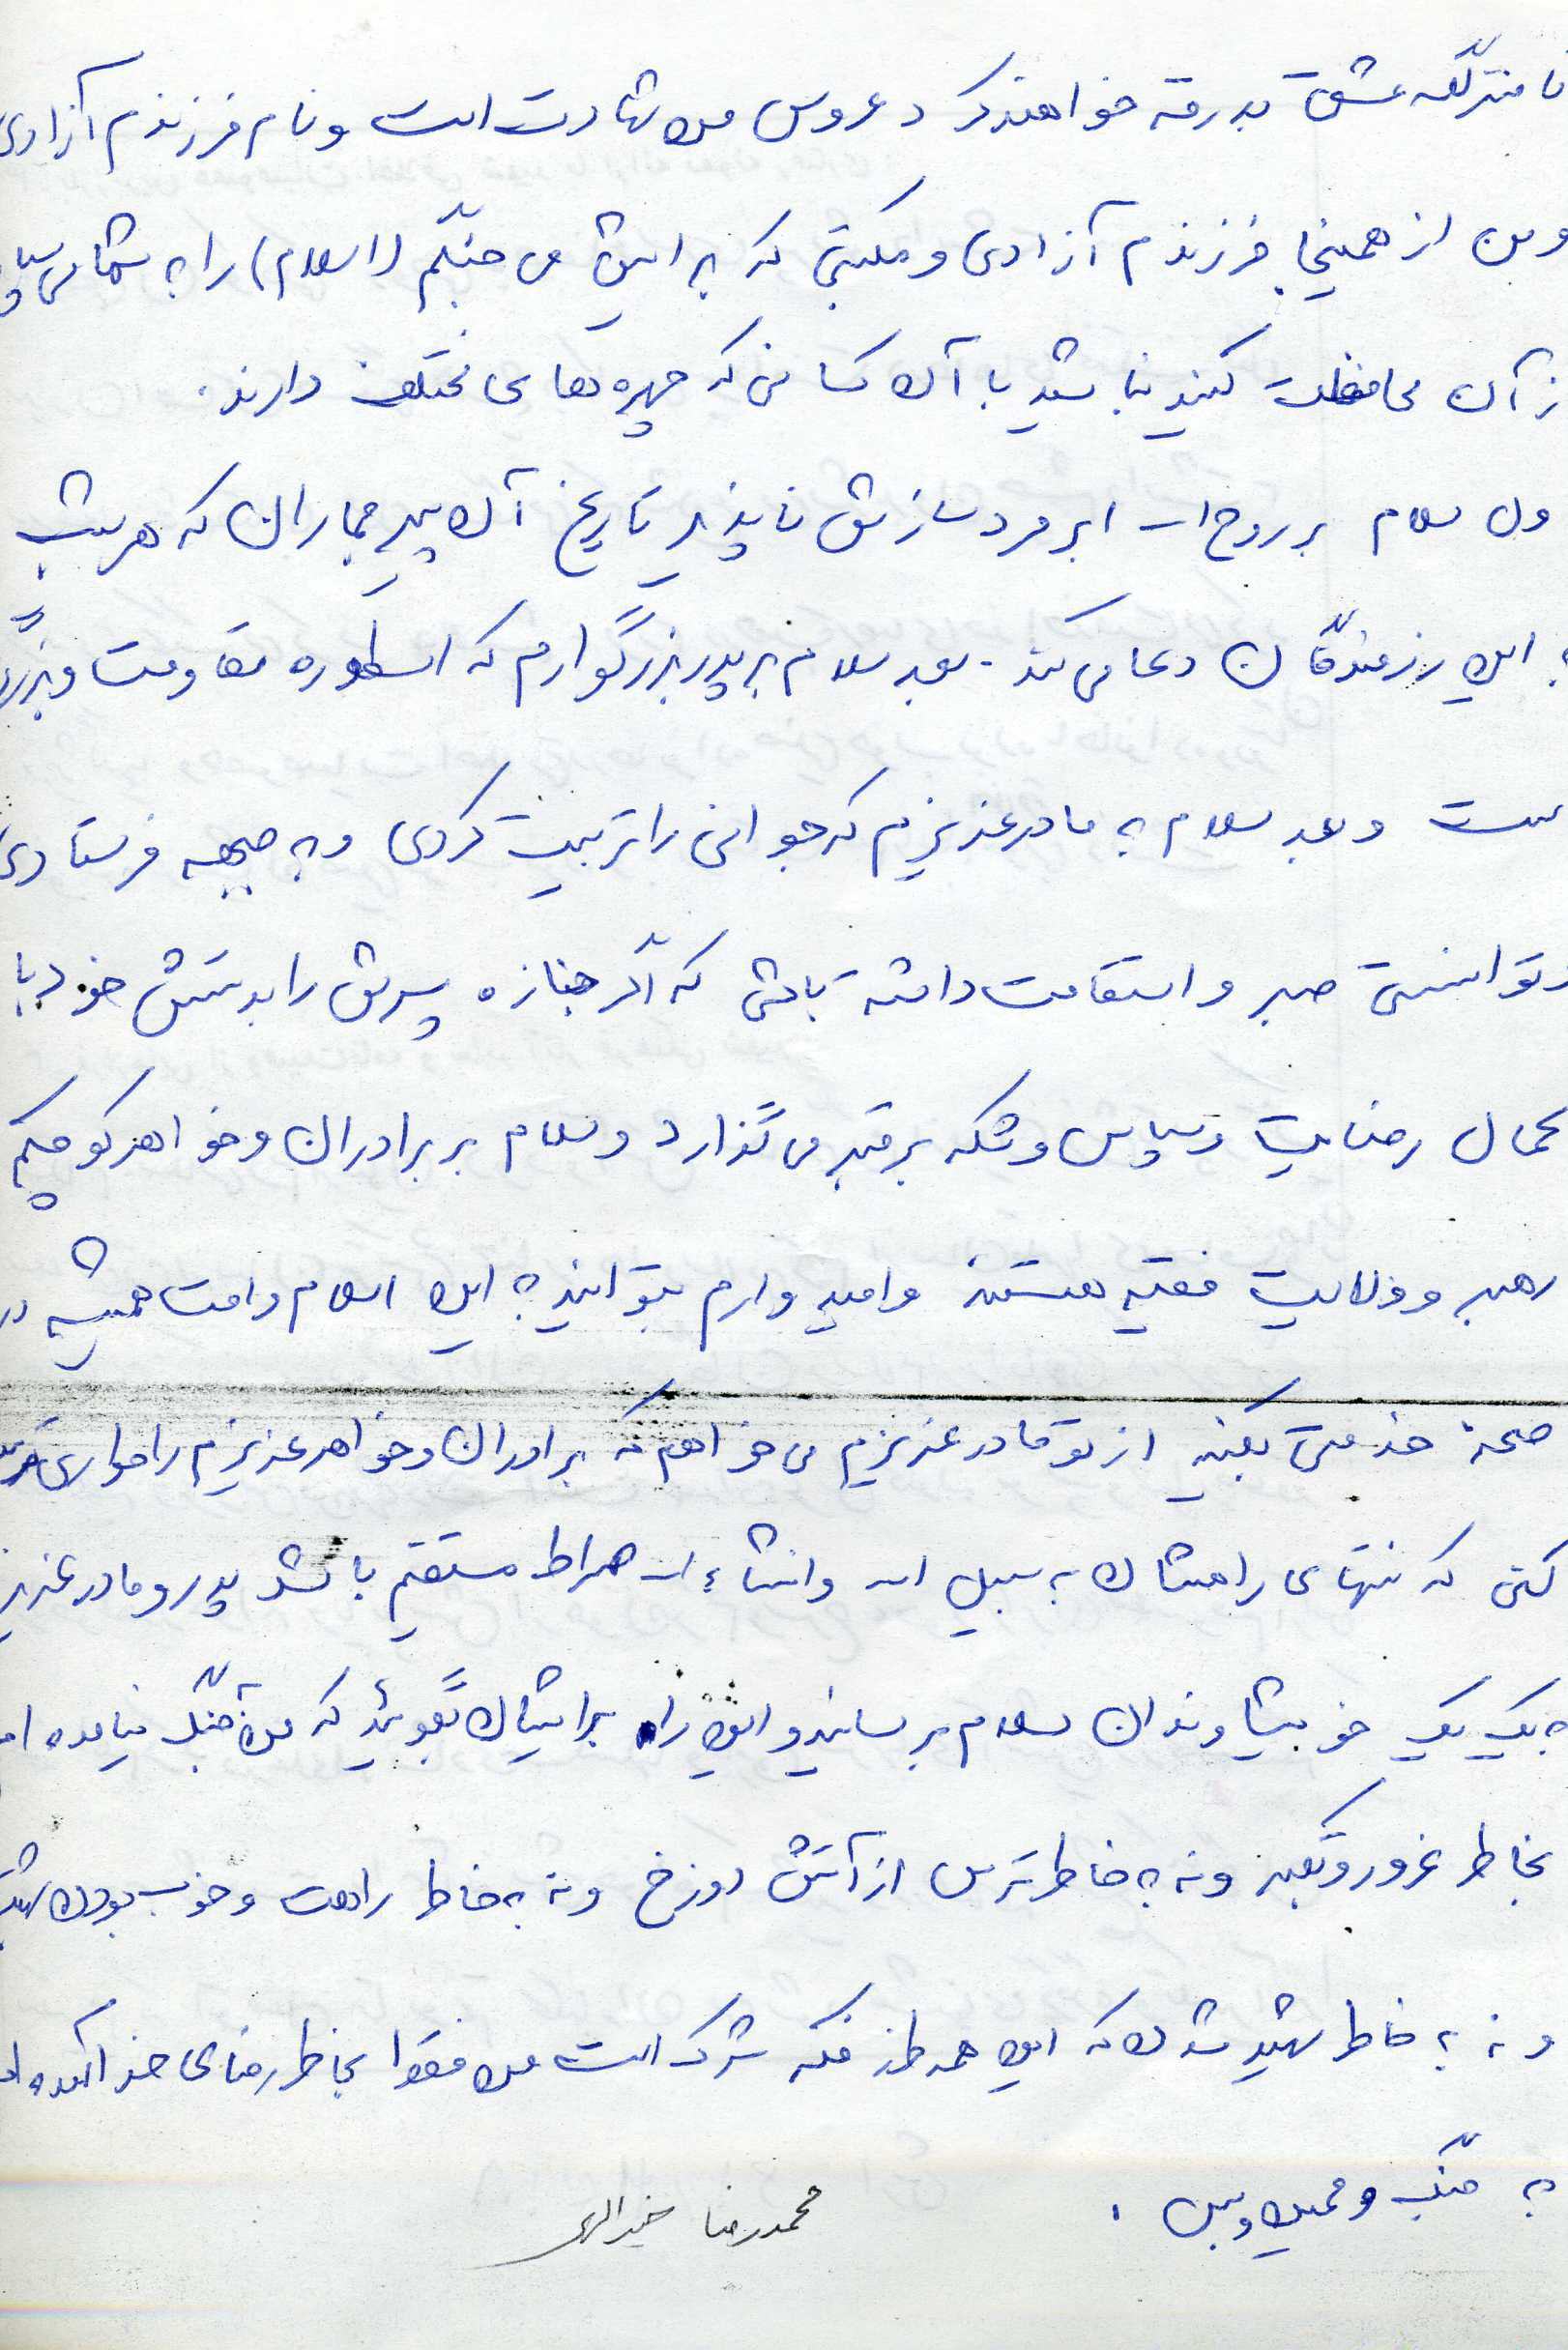 تا منزلگه عشق بدرقه خواهند کرد عروس من شهادت است و نام فرزندم آزادی
ومن از همینجا فرزندم آزادی و مکتبی که برایش می جنگم (اسلام) را به شما می سپارم
از آن محافظت کنید نباشید با آن کسانی که چهره های مختلف دارند.
اول سلام بر روح ا... ابر مرد سازش ناپذیر تاریخ آن پیر جماران که هر شب
به این رزمندگان دعا می کند. بعد سلام بر پدر بزرگوارم که اسطوره مقاومت و بزرگی
ست و بعد سلام به مادر عزیزم که جوانی را تربیت کردی و به جبهه فرستادی
و توانستی صبر و استقامت داشته باشی که اگر جنازه پسرش را بدستش خود با
کمال رضایت و سپاس و شکر بر قبر می گذارد و سلام بر برادران و خواهر کوچکم
رهبر و ولایت فقیه هستند و امید وارم بتوانید به این اسلام و امت همیشه در
صحنه خدمتی بکنید از تو مادر عزیزم می خواهم که برادران و خواهر عزیزم را طوری تربیت
کنی که تنهای راهشان به سبیل الله و انشاءا... صراط مستقیم باشد پدر و مادر عزیز
به یک یک خویشاوندان سلام برسانید و این را برایشان بگوئید که من به جنگ نیامده ام
بخاطر غرور و تکبر و نه به خاطر ترس از آتش دوزخ و نه به خاطر راحت و خوب بودن بهشت
و نه به خاطر شهید شدن که این همه طرز فکر شرک است من فقط بخاطر رضای خدا آمده ام
به جنگ و همین و بس.
محمدرضا خیرالهی